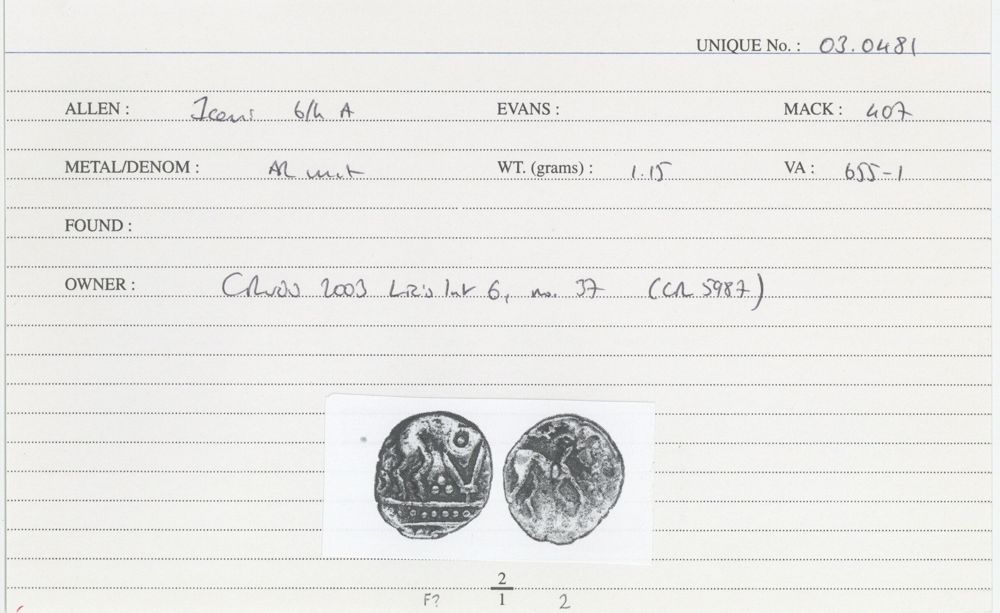 UNIQUE No. : 03.0481
ALLEN : Iceni 6/h A EVANS : MACK : 407
METAL/DENOM : AR unit WT. (grams) : 1.15 VA : 655-1
FOUND :
OWNER : 2003 List 6, no. 37 (CR 5987)
2
F? 1 2